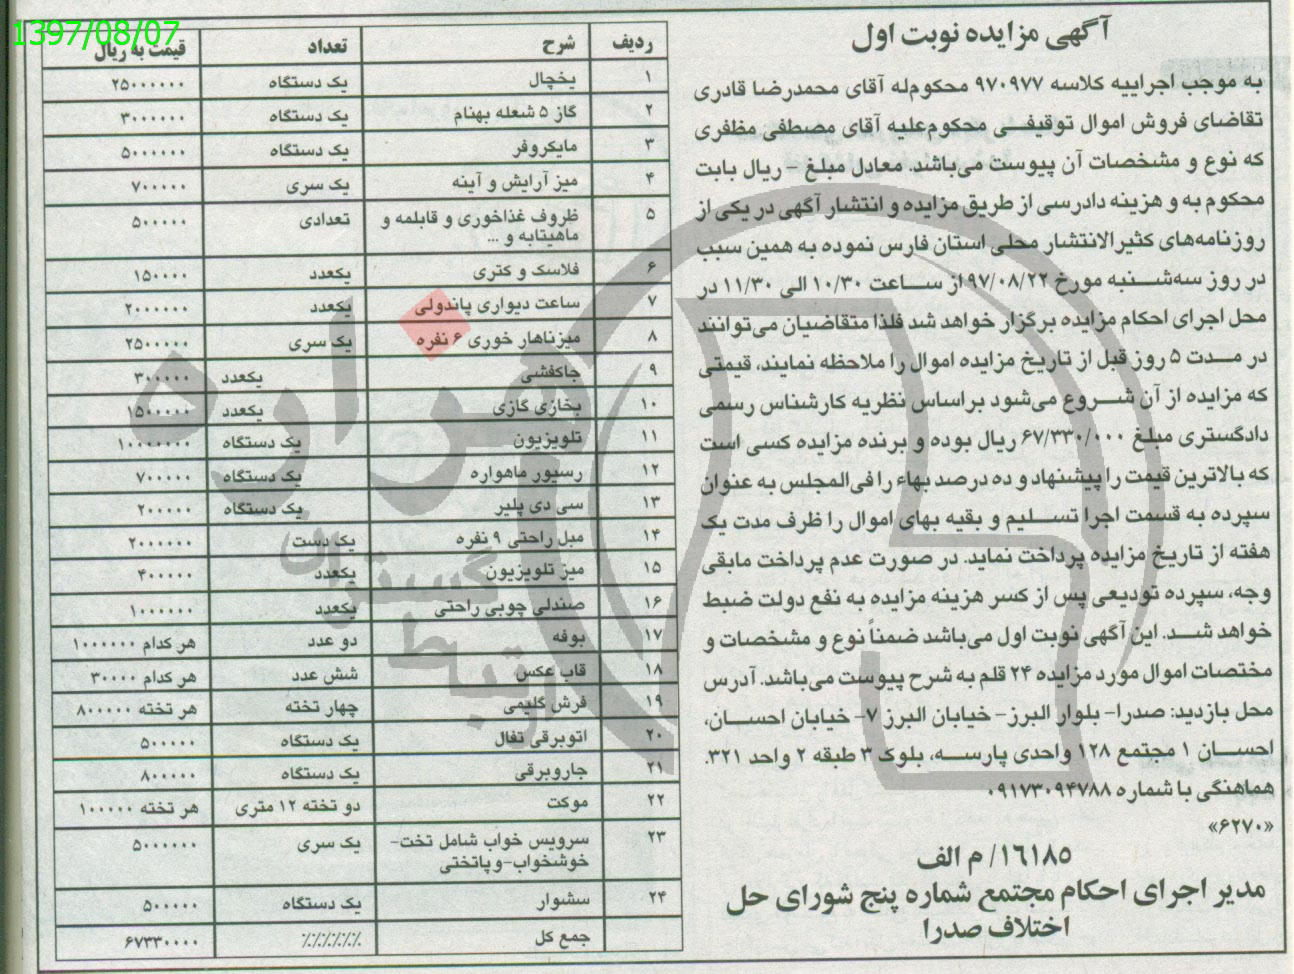 1397/08/07
آگهی مزایده نوبت اول
به موجب اجراییه کلاسه ۹۷۰۹۷۷ محکوم‌له آقای محمدرضا قادری
تقاضای فروش اموال توقیفــی محکوم‌علیه آقای مصطفی مظفری
که نوع و مشخصات آن پیوست می‌باشد. معادل مبلغ – ریال بابت
محکوم به و هزینه دادرسی از طریق مزایده و انتشار آگهی در یکی از
روزنامه‌های کثیرالانتشار محلی استان فارس نموده به همین سبب
در روز سه‌شــنبه مورخ ۹۷/۰۸/۲۲ از ســاعت ۱۰/۳۰ الی ۱۱/۳۰ در
محل اجرای احکام مزایده برگزار خواهد شد فلذا متقاضیان می‌توانند
در مــدت ۵ روز قبل از تاریخ مزایده اموال را ملاحظه نمایند، قیمتی
که مزایده از آن شــروع می‌شود براساس نظریه کارشناس رسمی
دادگستری مبلغ ۶۷/۳۳۰/۰۰۰ ریال بوده و برنده مزایده کسی است
که بالاترین قیمت را پیشنهاد و ده درصد بهاء را فی‌المجلس به عنوان
سپرده به قسمت اجرا تســلیم و بقیه بهای اموال را ظرف مدت یک
هفته از تاریخ مزایده پرداخت نماید. در صورت عدم پرداخت مابقی
وجه، سپرده تودیعی پس از کسر هزینه مزایده به نفع دولت ضبط
خواهد شــد. این آگهی نوبت اول می‌باشد ضمناً نوع و مشخصات و
مختصات اموال مورد مزایده ۲۴ قلم به شرح پیوست می‌باشد. آدرس
محل بازدید: صدرا- بلوار البرز- خیابان البرز ۷- خیابان احســان،
احســان ۱ مجتمع ۱۲۸ واحدی پارســه، بلوک ۳ طبقه ۲ واحد ۳۲۱.
هماهنگی با شماره ۰۹۱۷۳۰۹۴۷۸۸
«۶۲۷۰»
۱۶۱۸۵/ م الف
مدیر اجرای احکام مجتمع شماره پنج شورای حل
اختلاف صدرا
ردیف شرح تعداد قیمت به ریال
۱ یخچال یک دستگاه ۲۵۰۰۰۰۰۰
۲ گاز ۵ شعله بهنام یک دستگاه ۳۰۰۰۰۰۰
۳ مایکروفر یک دستگاه ۵۰۰۰۰۰۰
۴ میز آرایش و آینه یک سری ۷۰۰۰۰۰
۵ ظروف غذاخوری و قابلمه و تعدادی ۵۰۰۰۰۰
ماهیتابه و ...
۶ فلاسک و کتری یکعدد ۱۵۰۰۰۰
۷ ساعت دیواری پاندولی یکعدد ۲۰۰۰۰۰۰
۸ میزناهار خوری ۶ نفره یک سری ۲۵۰۰۰۰۰
۹ جاکفشی یکعدد ۳۰۰۰۰۰
۱۰ بخازی گازی یکعدد ۱۵۰۰۰۰۰
۱۱ تلویزیون یک دستگاه ۱۰۰۰۰۰۰۰
۱۲ رسیور ماهواره یک دستگاه ۷۰۰۰۰۰
۱۳ سی دی پلیر یک دستگاه ۲۰۰۰۰۰
۱۴ مبل راحتی ۹ نفره یک دست ۲۰۰۰۰۰۰
۱۵ میز تلویزیون یکعدد ۴۰۰۰۰۰
۱۶ صندلی چوبی راحتی یکعدد ۱۰۰۰۰۰۰
۱۷ بوفه دو عدد هر کدام ۱۰۰۰۰۰۰
۱۸ قاب عکس شش عدد هر کدام ۳۰۰۰۰
۱۹ فرش گلیمی چهار تخته هر تخته ۸۰۰۰۰۰
۲۰ اتوبرقی تفال یک دستگاه ۵۰۰۰۰۰
۲۱ جاروبرقی یک دستگاه ۸۰۰۰۰۰
۲۲ موکت دو تخته ۱۲ متری هر تخته ۱۰۰۰۰۰
۲۳ سرویس خواب شامل تخت- یک سری ۵۰۰۰۰۰۰
خوشخواب-وپاتختی
۲۴ سشوار یک دستگاه ۵۰۰۰۰۰
جمع کل ٪٪٪٪٪٪ ۶۷۳۳۰۰۰۰
هزاره
گستران
ارتباط